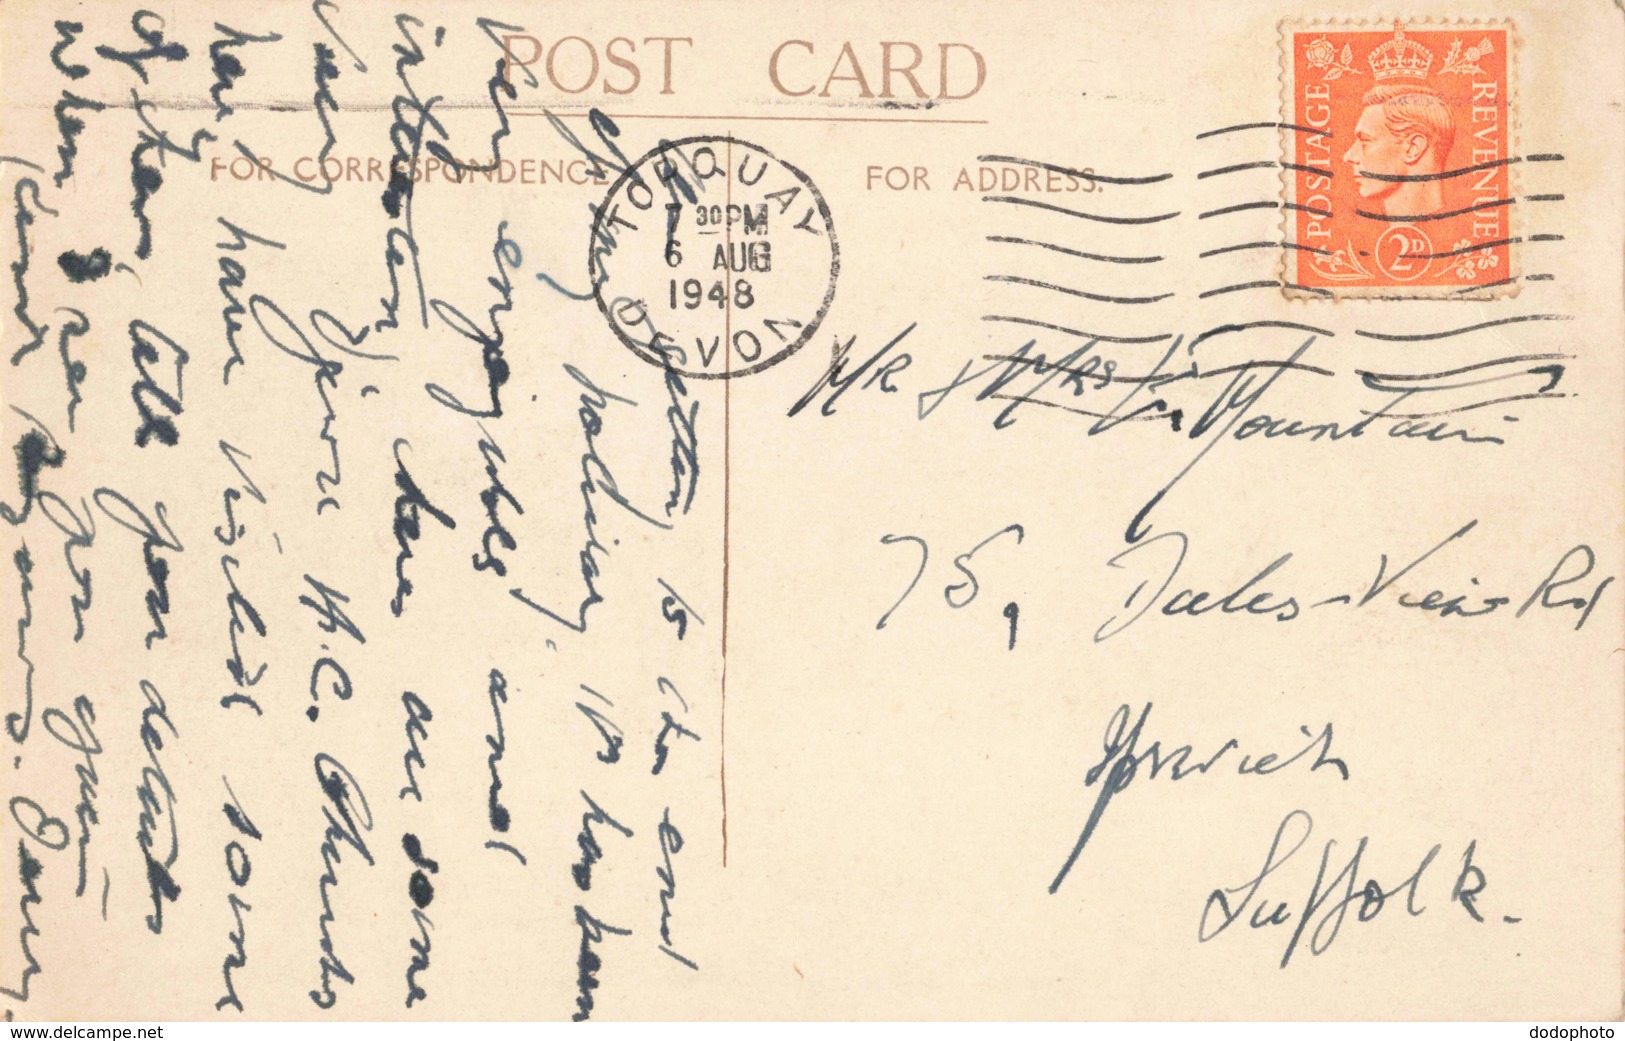 POST CARD
FOR CORRESPONDENCE
FOR ADDRESS.
TORQUAY
7 30PM
6 AUG
1948
DEVON
POSTAGE
REVENUE
2D
getting to the end
of my holiday. It has been
very enjoyable and
interesting, there are some
very fine R.C. Churches
here, have visited some
of them, tell you details
when I see you again
kind regards.
Mr & Mrs Mountain
75, Dales-View Rd
Ipswich
Suffolk.
www.delcampe.net
dodophoto